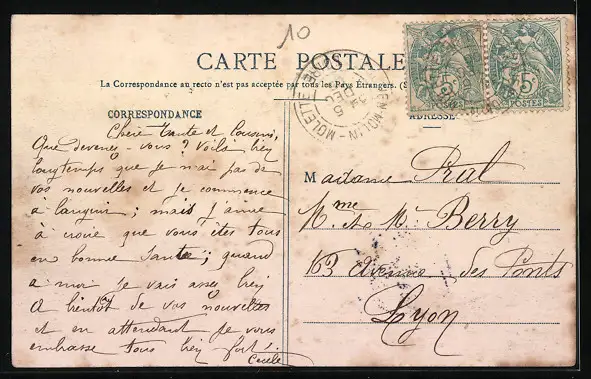 10
CARTE POSTALE
La Correspondance au recto n'est pas acceptée par tous les Pays Étrangers. (S
CORRESPONDANCE
ADRESSE
Chère tante et cousins,
Que devenez-vous ? Voilà bien
longtemps que je n'ai pas de
vos nouvelles et je commence
à languir ; mais j'aime
à croire que vous êtes tous
en bonne santé ; quand
à moi je vais assez bien
A bientôt de vos nouvelles
et en attendant je vous
embrasse tous bien fort !
Cécile
Madame Pral
Mme et Mr Berry
163 Avenue des Ponts
Lyon
5 POSTES